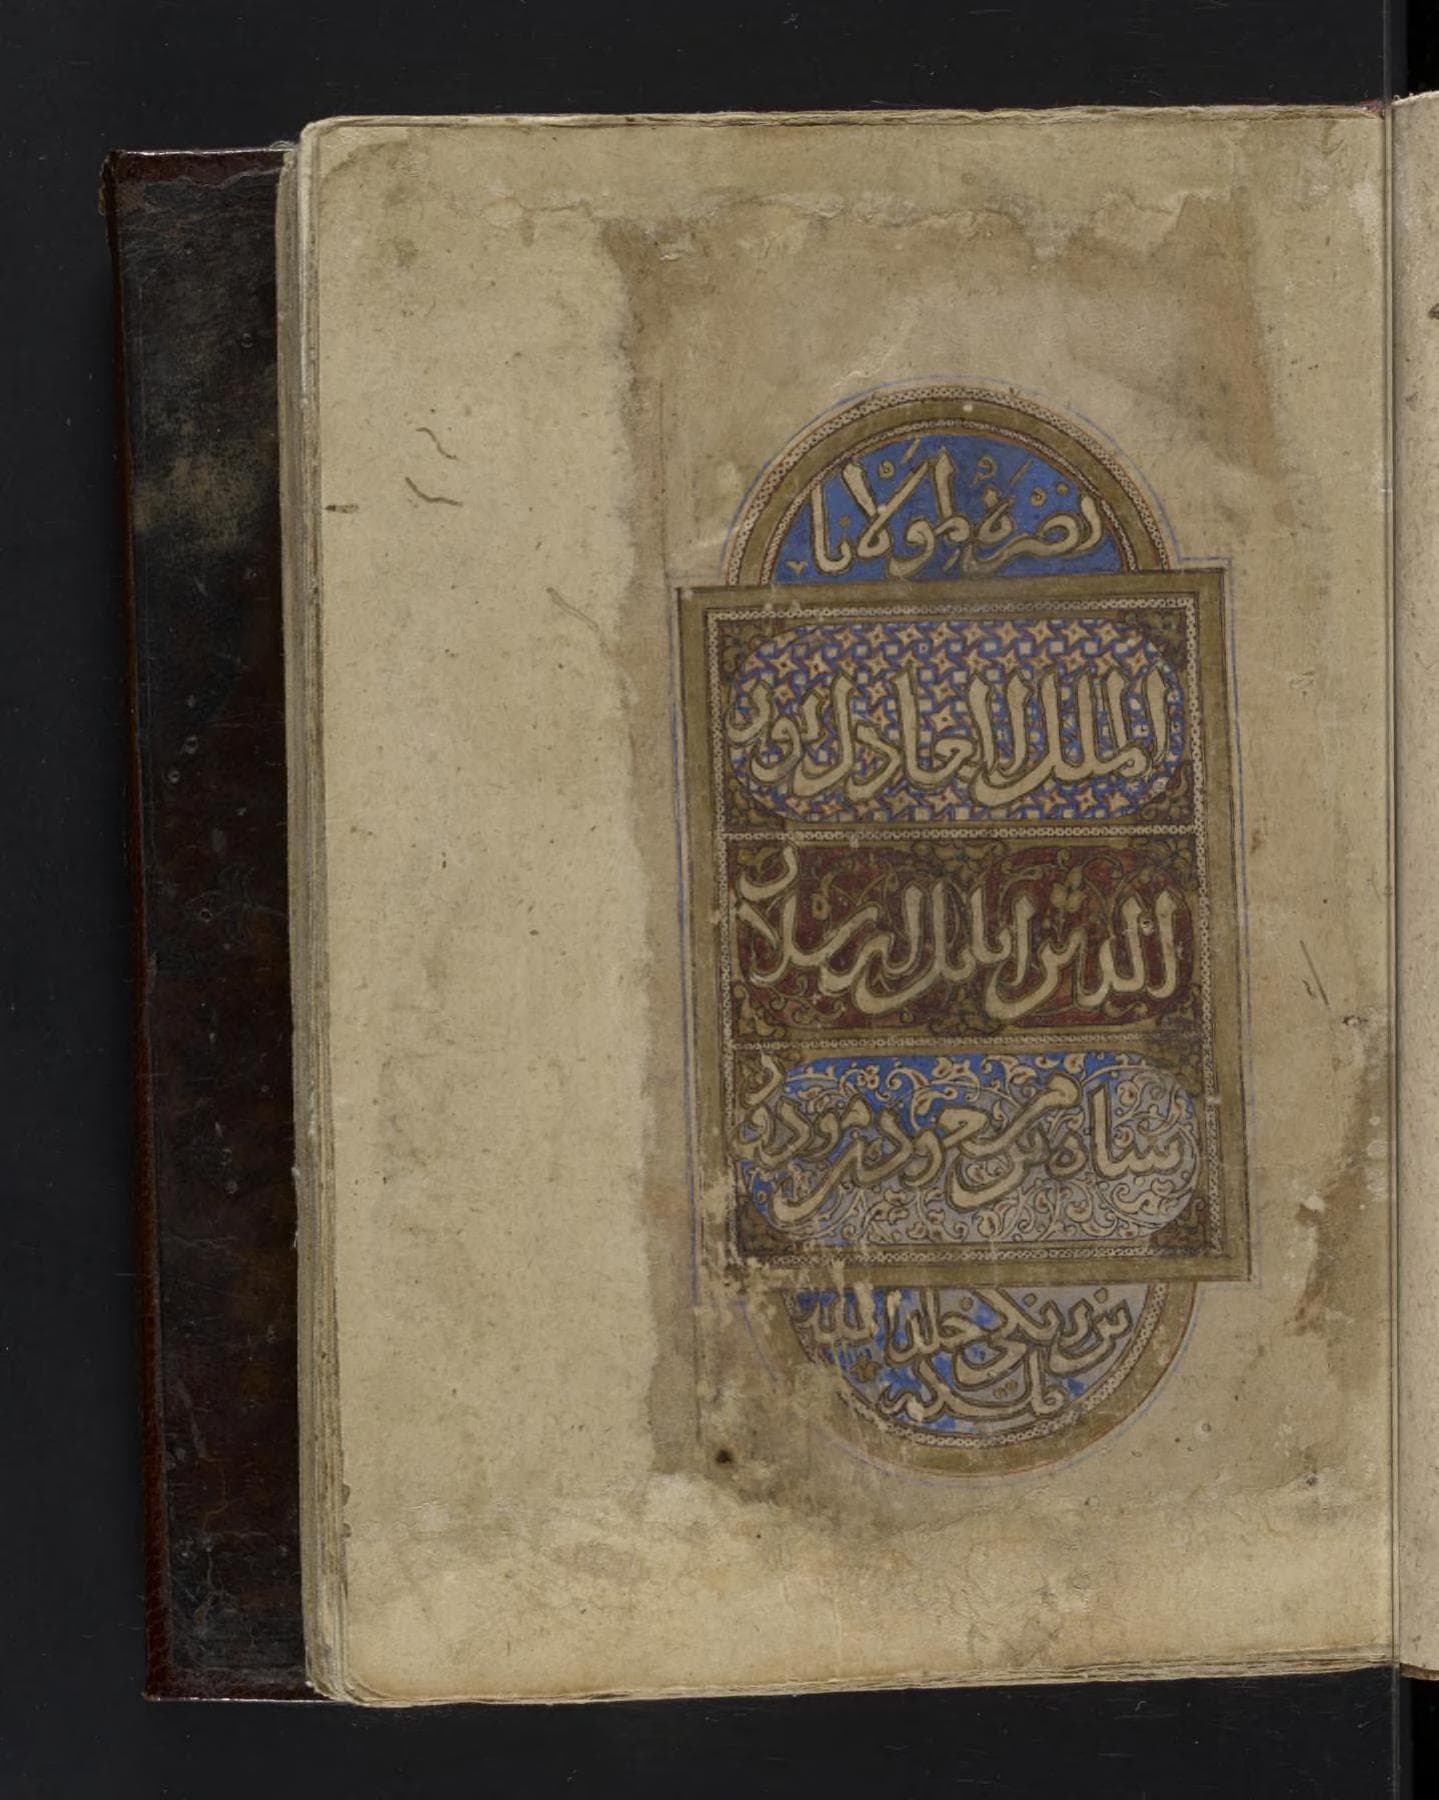 نصرة مولانا
الملك العادل نور
الدين اتابك ارسلان
شاه بن مسعود بن مودود
بن زنكي خلد الله
ملكه